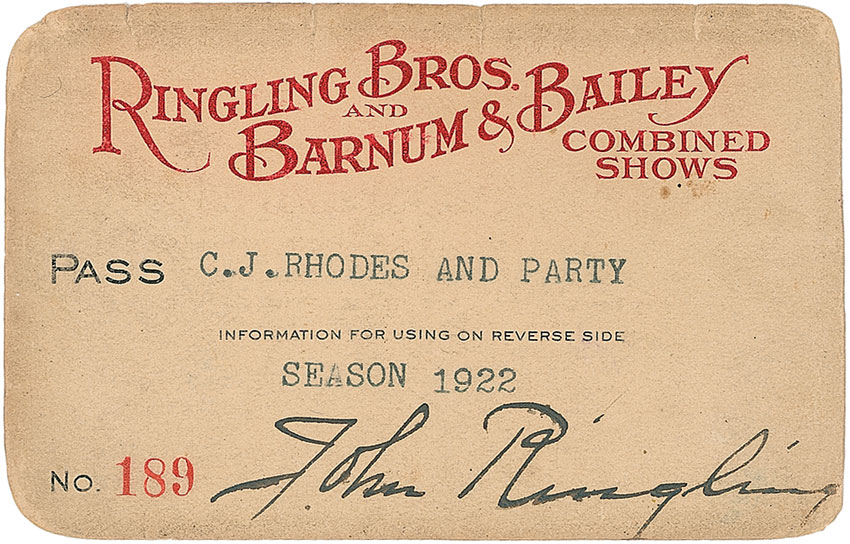 RINGLING BROS.
AND
BARNUM & BAILEY
COMBINED
SHOWS
PASS C.J.RHODES AND PARTY
INFORMATION FOR USING ON REVERSE SIDE
SEASON 1922
No. 189 John Ringling